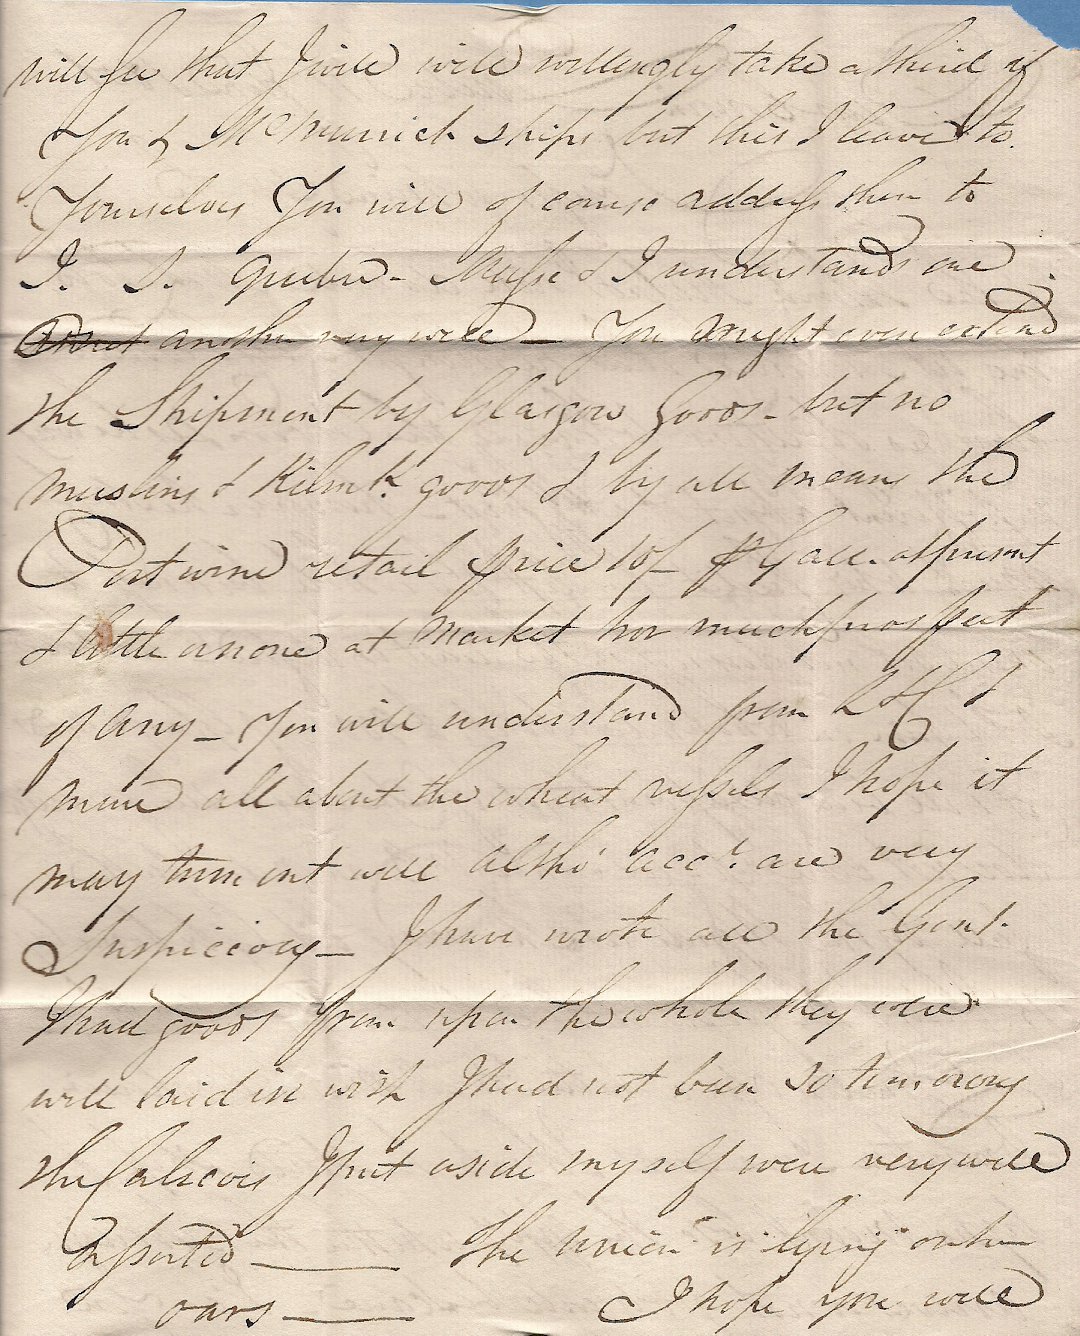 will see that I will will willingly take a third if
You & McMurrich ships but this I leave to
Yourselves You will of course address them to
I. S. Quebec - Masse & I understands one
another very well — You might even extend
the Shipment by Glasgow Goods - but no
muslins & Kilmk. goods & by all means the
Port wine retail price 10/- p Gall. at present
& little or none at market nor much prospect
of any — You will understand from
more all about the wheat vessels I hope it
may turn out well altho' acct. are very
Suspicious — I have wrote all the Gent.
I had goods from upon the whole they were
well laid in wish I had not been so timorous
the Calicoes I put aside myself were very well
assorted — The is lying on her
oars — I hope you will